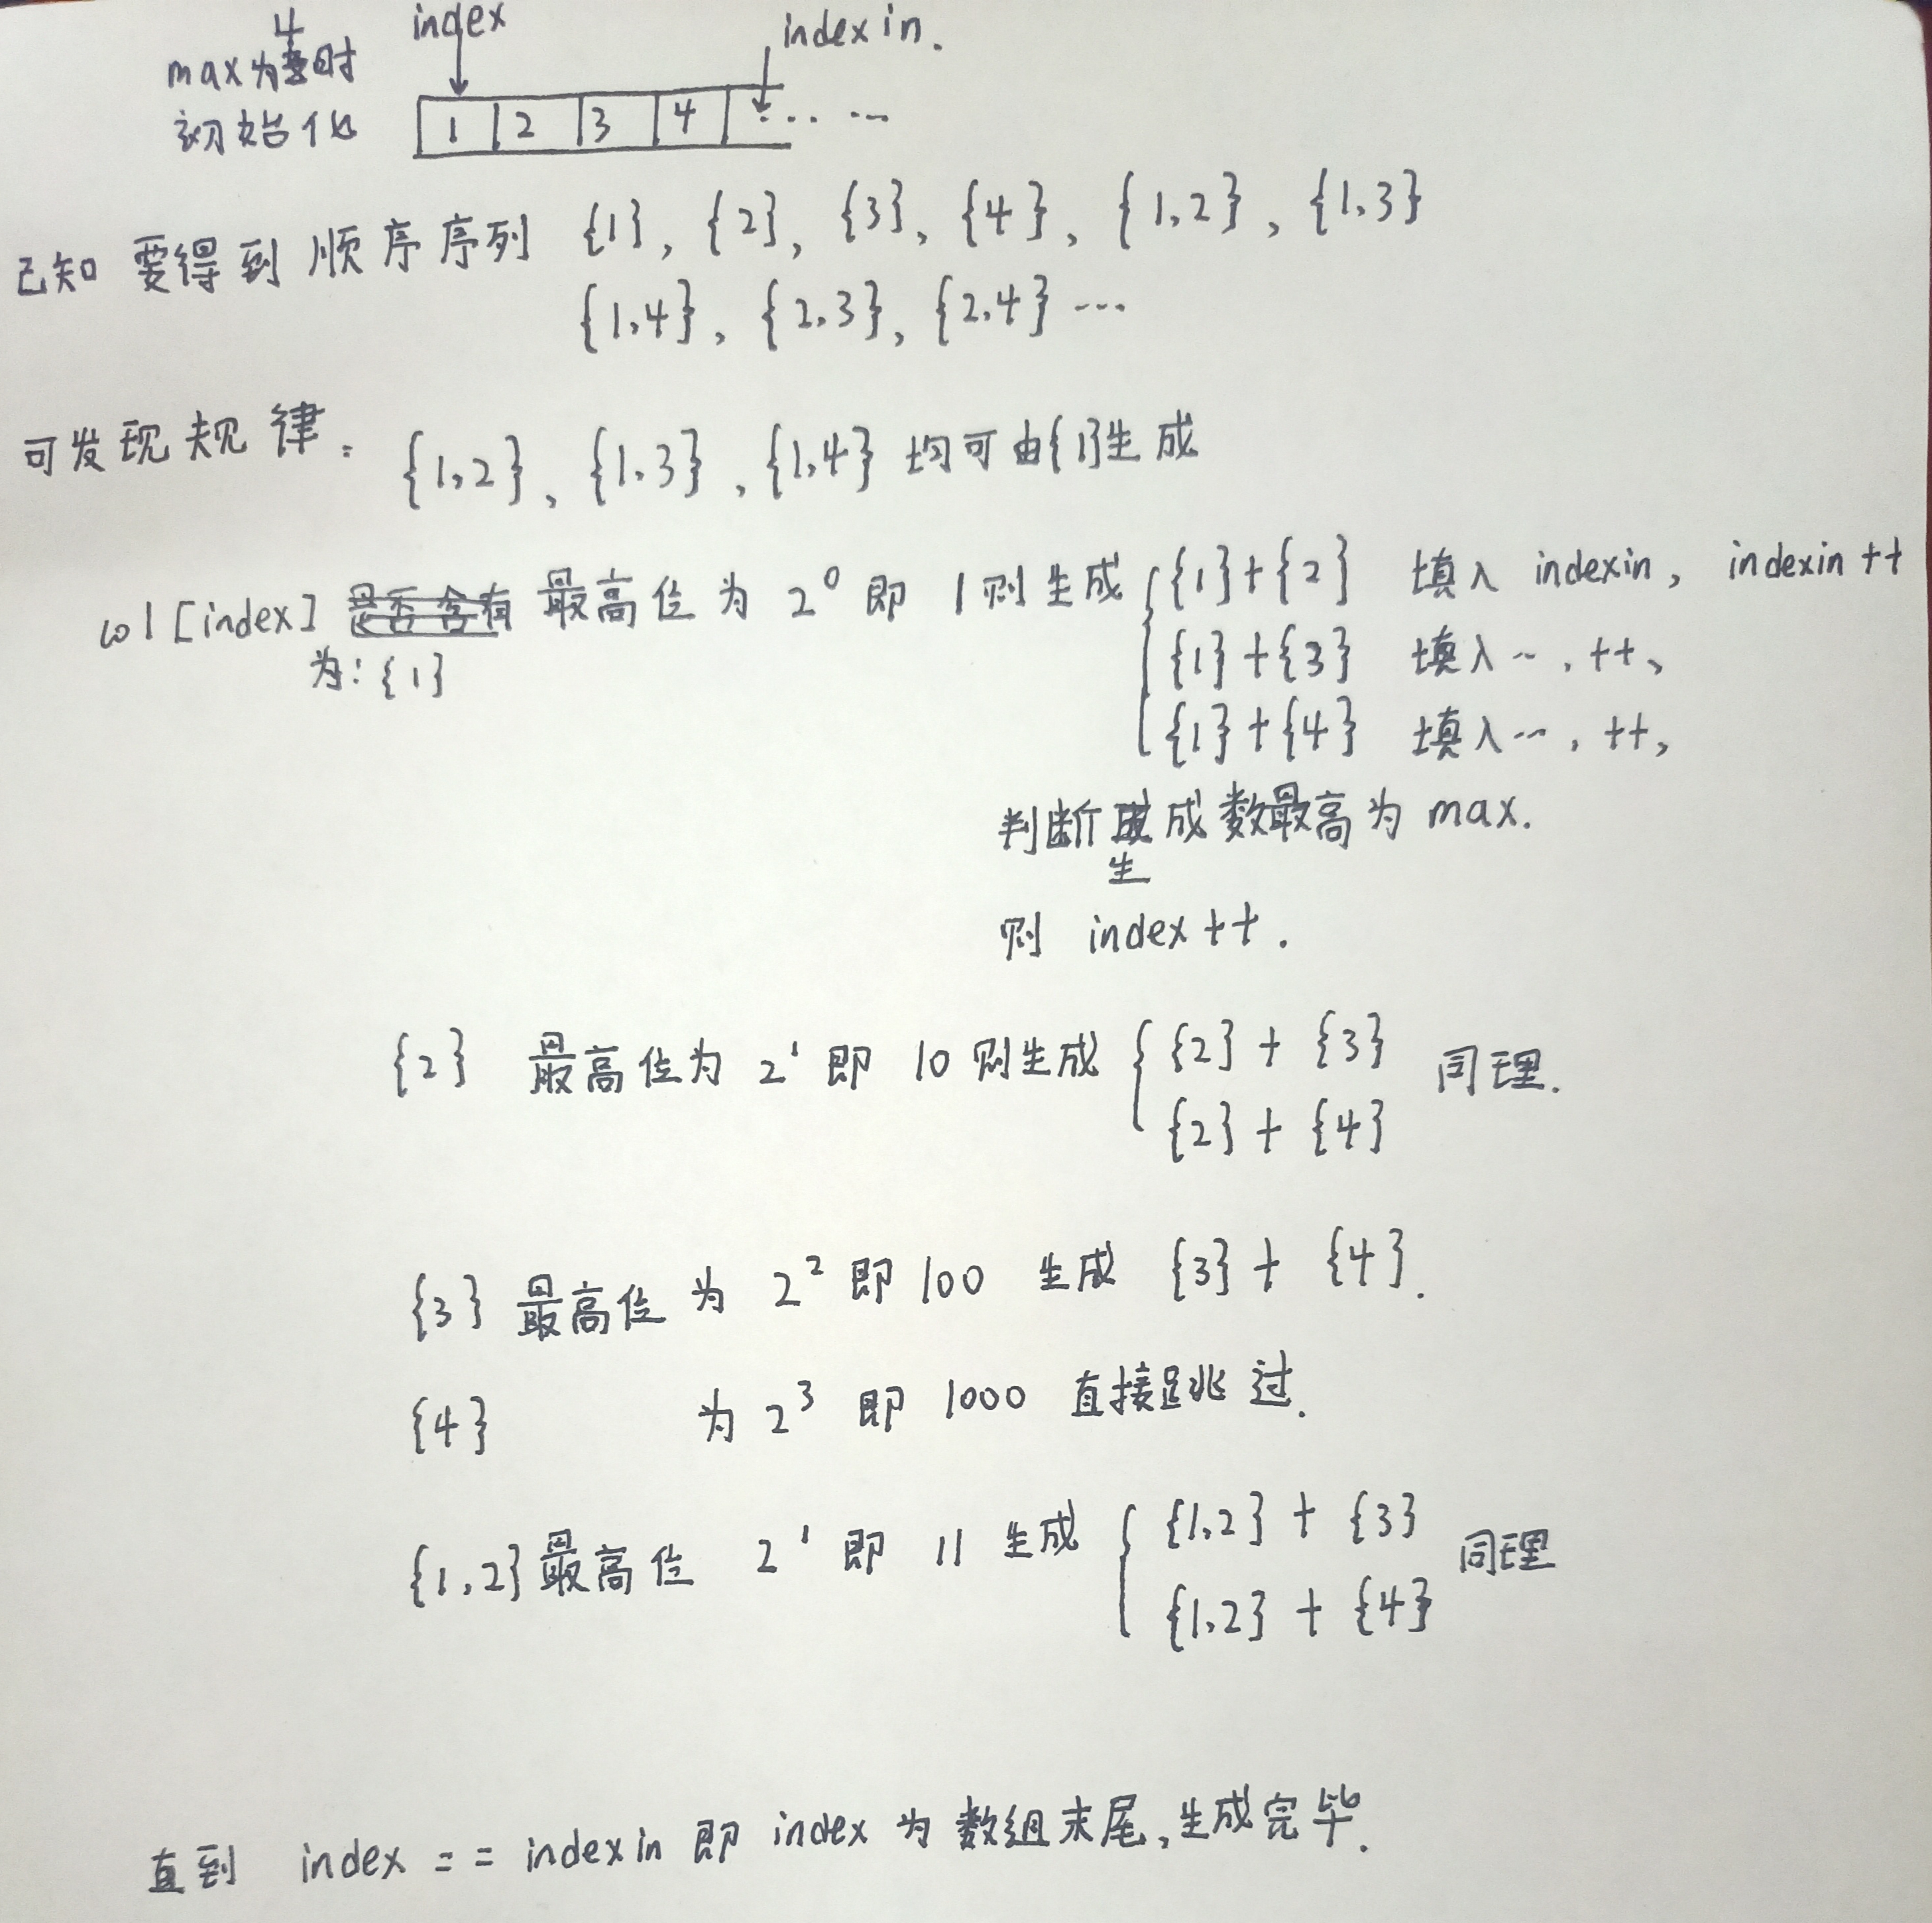 index
indexin.
4
max为时
初始化
1 2 3 4 ... ...
已知 要得到 顺序序列 {1}, {2}, {3}, {4}, {1,2}, {1,3}
{1,4}, {2,3}, {2,4} ...
可发现规律: {1,2}, {1,3}, {1,4} 均可由{1}生成
col[index] 是否含有 最高位为 2^0 即 1 则生成 {1}+{2} 填入 indexin, indexin++
为:{1}
{1}+{3} 填入…, ++,
{1}+{4} 填入…, ++,
判断生成数最高为 max.
则 index++.
{2} 最高位为 2^1 即 10 则生成 {2}+{3} 同理.
{2}+{4}
{3} 最高位 为 2^2 即 100 生成 {3}+{4}.
{4} 为 2^3 即 1000 直接跳过.
{1,2} 最高位 2^1 即 11 生成 {1,2}+{3} 同理
{1,2}+{4}
直到 index == indexin 即 index 为 数组末尾,生成完毕.